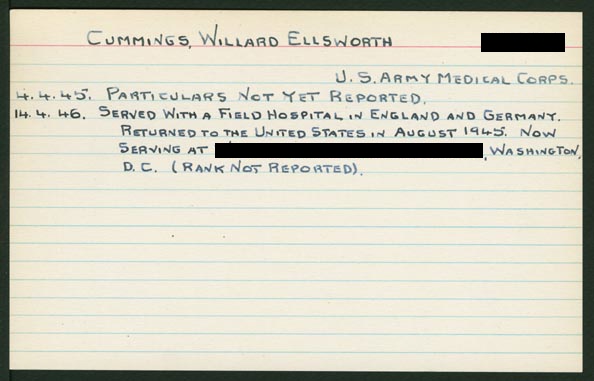 CUMMINGS, WILLARD ELLSWORTH
U.S. ARMY MEDICAL CORPS.
4.4.45. PARTICULARS NOT YET REPORTED.
14.4.46. SERVED WITH A FIELD HOSPITAL IN ENGLAND AND GERMANY.
RETURNED TO THE UNITED STATES IN AUGUST 1945. NOW
SERVING AT , WASHINGTON,
D.C. (RANK NOT REPORTED).